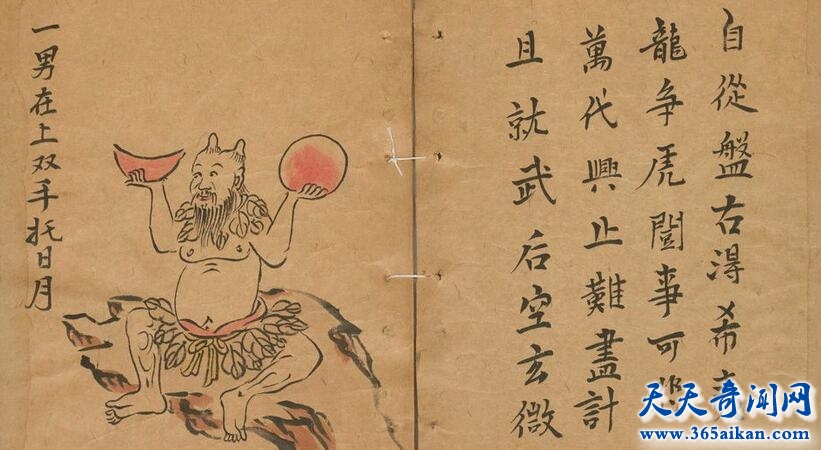 自從盤古淂希
龍爭虎闘事可
萬代興止難盡計
且就武后空玄微
一男在上双手托日月
天天奇闻网
www.365aikan.com